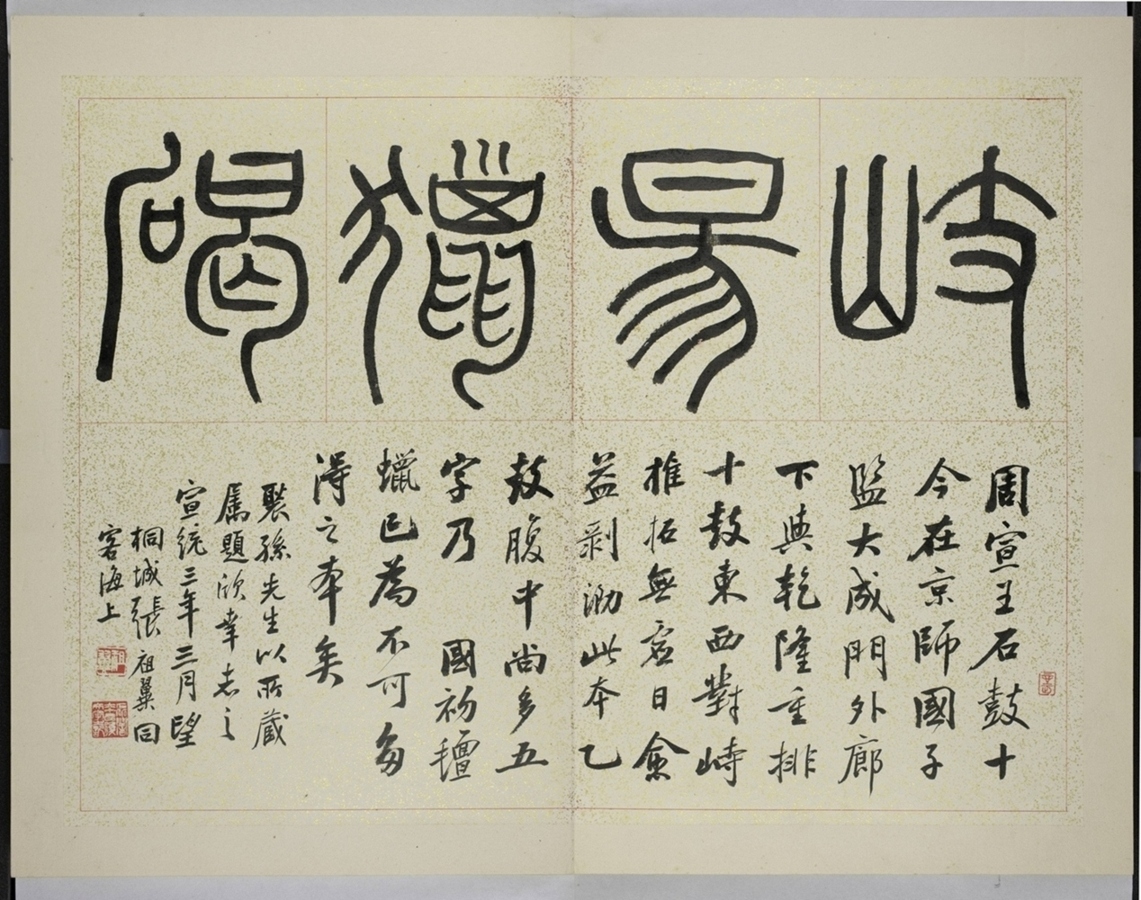 岐昜獵碣
周宣王石鼓十
今在京師國子
監大成門外廊
下與乾隆重排
十鼓東西對峙
推拓無虛日愈
益剥泐此本乙
鼓腹中尚多五
字乃 國初氊
蠟已為不可多
得之本矣
褧孫先生以所藏
屬題欣幸志之
宣統三年三月望
桐城張祖翼同
客海上